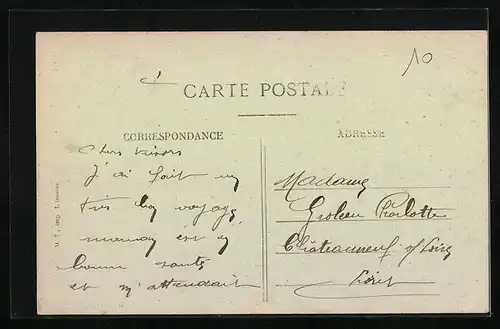 10
CARTE POSTALE
CORRESPONDANCE
ADRESSE
M. T., imp. Limoges
Chers
J'ai fait un
très bon voyage
maman est en
bonne santé
et m'attendait
Madame
Groleau Charlotte
Châteauneuf s/Loire
Loiret